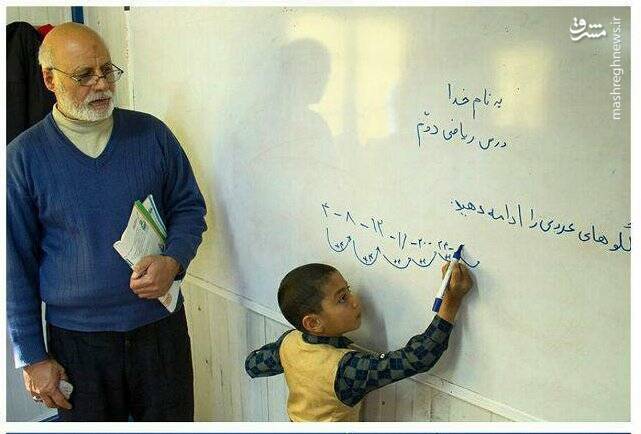 مشرق
mashreghnews.ir
به نام خدا
درس ریاضی دوّم
گوهای عددی را ادامه دهید.
۴ - ۸ - ۱۲ - ۱۶ - ۲۰ - ۲۴ -